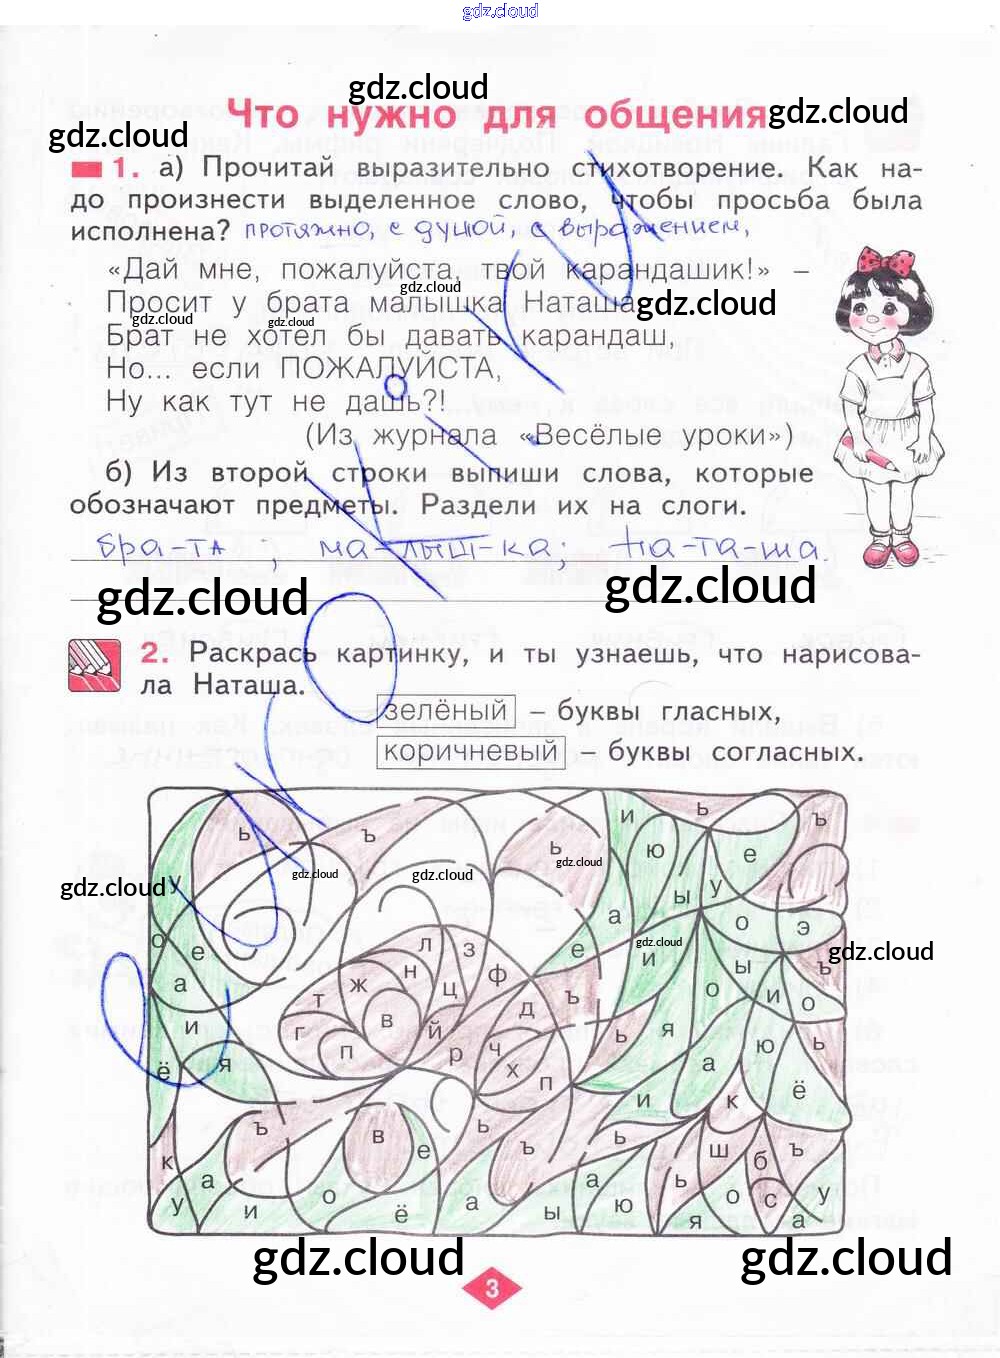 gdz.cloud
gdz.cloud
Что нужно для общения
gdz.cloud
gdz.cloud
1. а) Прочитай выразительно стихотворение. Как на-
до произнести выделенное слово, чтобы просьба была
исполнена? протяжно, с душой, с выражением,
«Дай мне, пожалуйста, твой карандашик!» –
gdz.cloud
Просит у брата малышка Наташа
gdz.cloud
gdz.cloud
gdz.cloud
Брат не хотел бы давать карандаш,
Но... если ПОЖАЛУЙСТА,
Ну как тут не дашь?!
(Из журнала «Весёлые уроки»)
б) Из второй строки выпиши слова, которые
обозначают предметы. Раздели их на слоги.
бра-та ; ма-лыш-ка; На-та-ша.
gdz.cloud
gdz.cloud
2. Раскрась картинку, и ты узнаешь, что нарисова-
ла Наташа.
зелёный – буквы гласных,
коричневый – буквы согласных.
и ь ъ
ь ъ ь ю е
gdz.cloud
gdz.cloud
gdz.cloud
gdz.cloud
у ы у
а о э
о е л з е и ы ъ
gdz.cloud
gdz.cloud
а ж н ц ф о и о
т д ъ
и г в й ь я ю ь
п р ч
ё я х п а ё
и к
ъ в е ь ъ ь ш б ъ
к а ь
у и о ё а ы а ю я о с а у
gdz.cloud
gdz.cloud
3